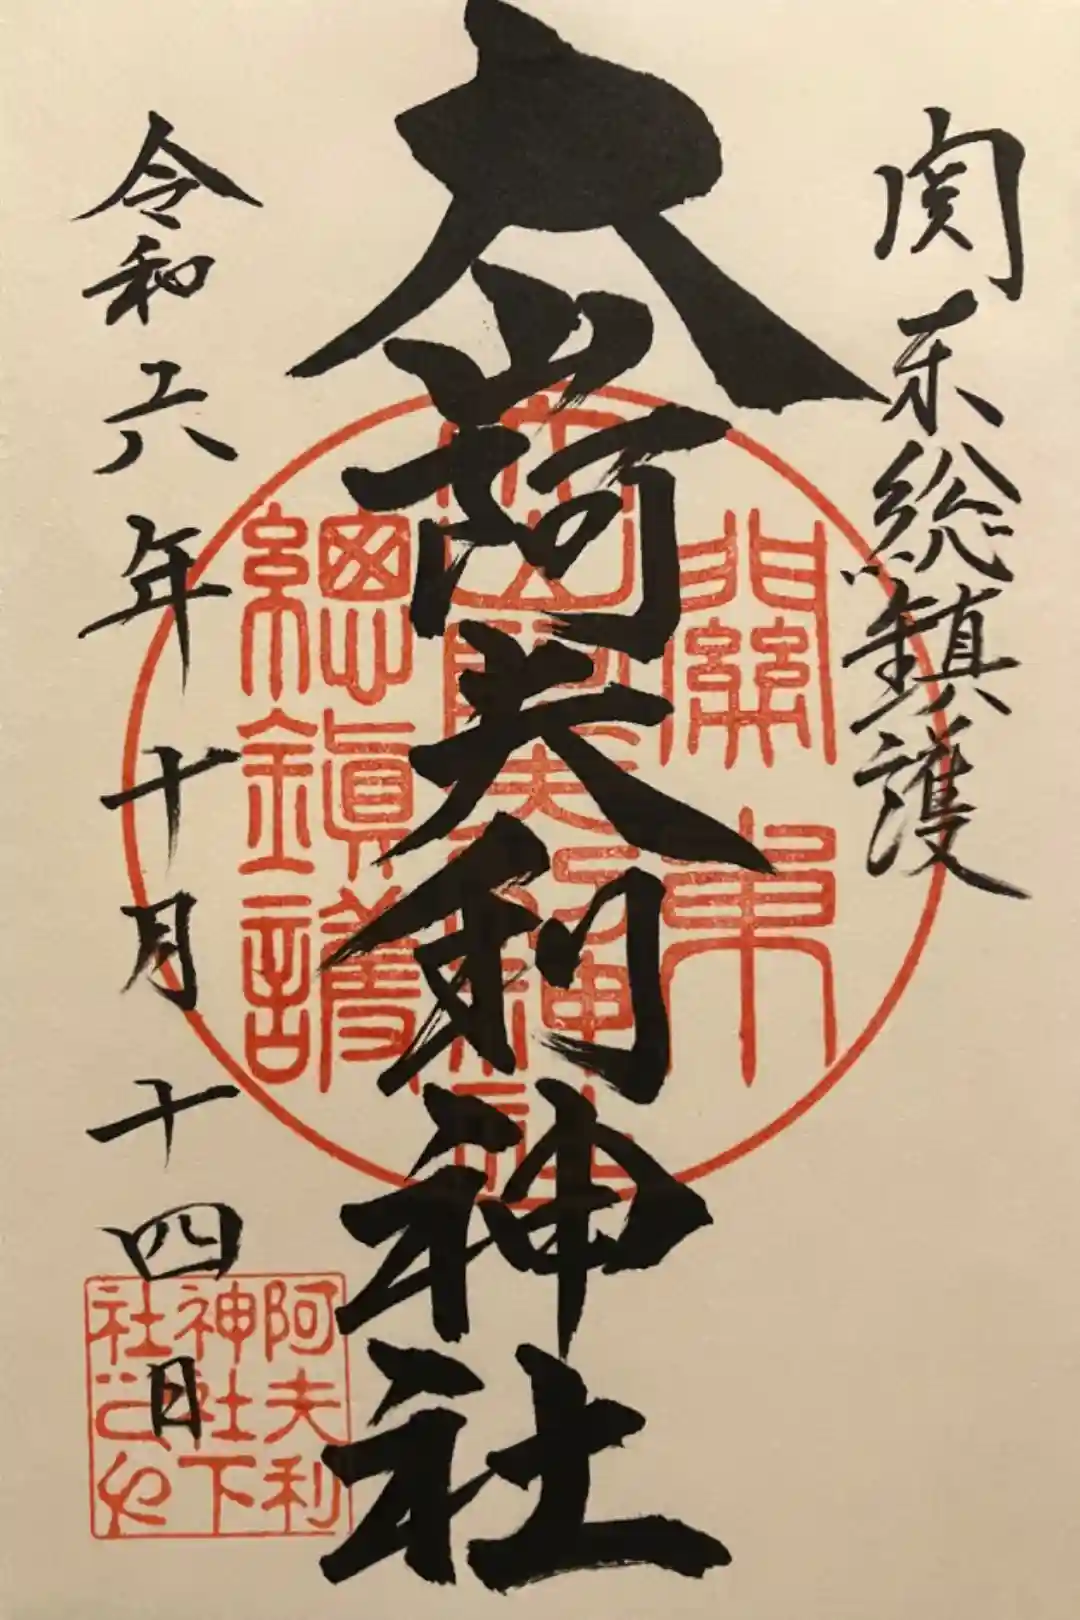 関東総鎮護
大山阿夫利神社
令和六年十月十四日
關東
大山阿夫利神社
總鎭護
阿夫利
神社下
社